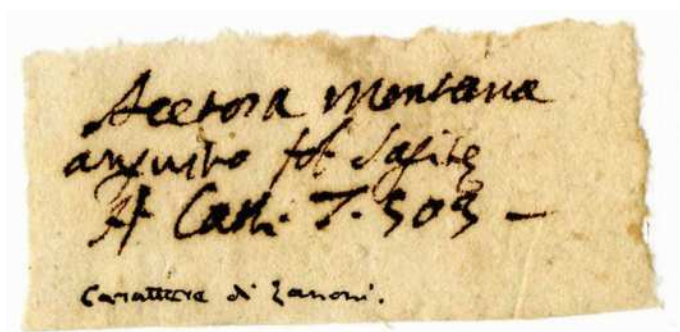 Acetosa montana
angusto fol Sagitę
H Cath. T. 503 –
Carattere di Zanoni.